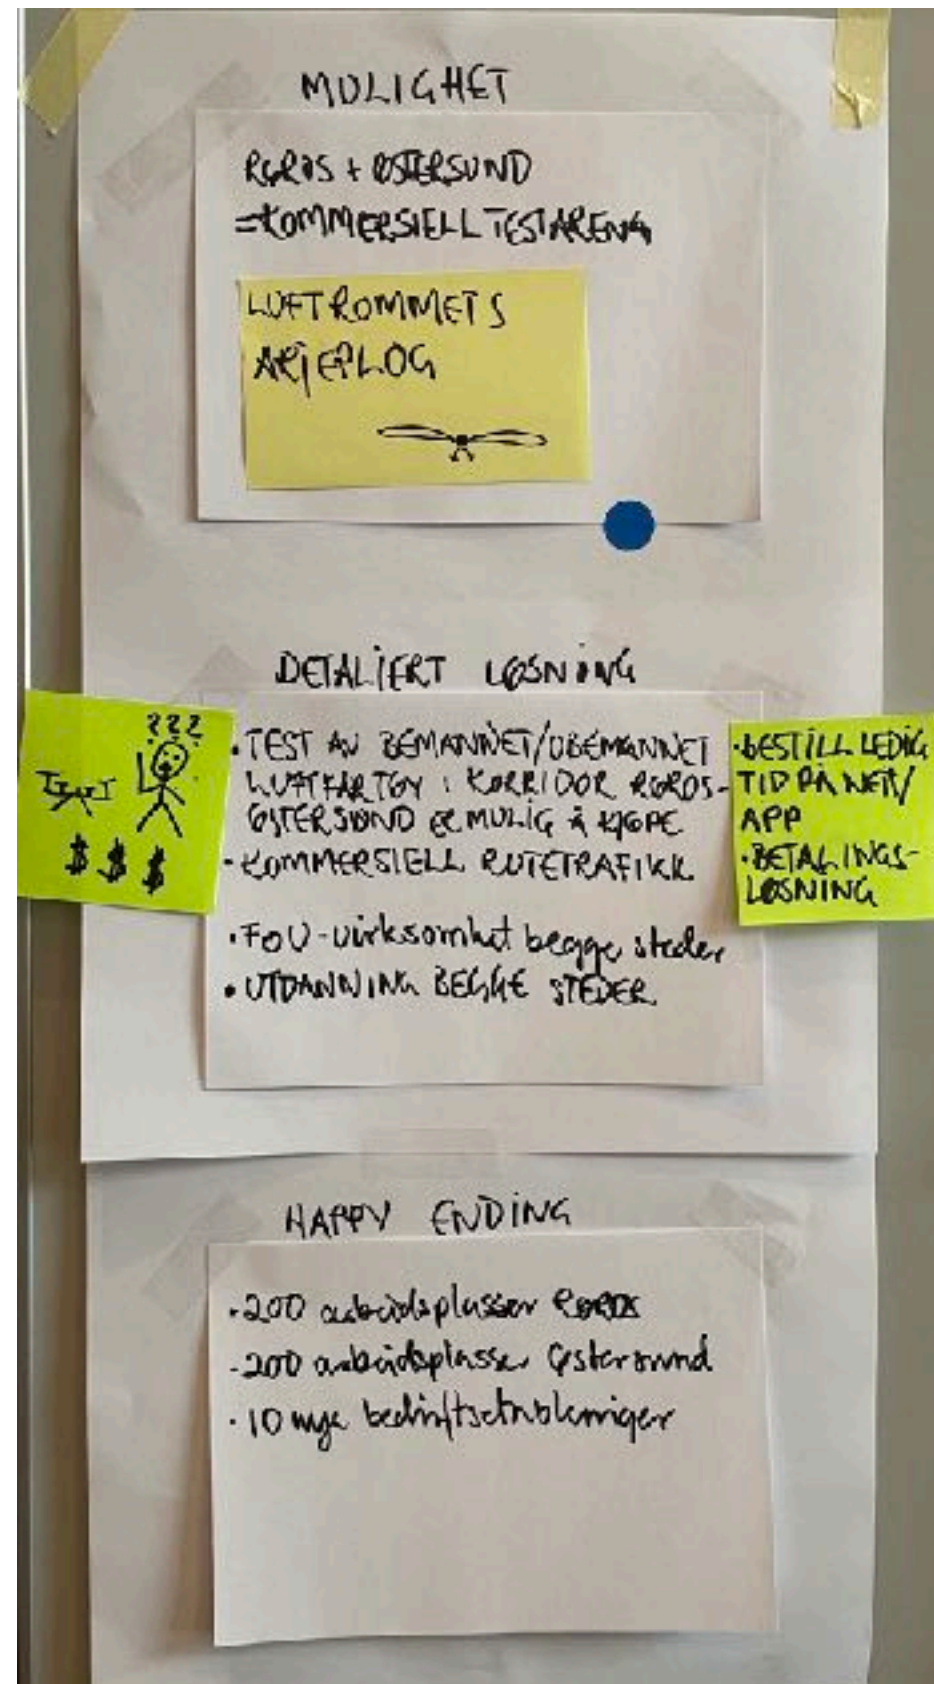 MULIGHET
RØROS + ØSTERSUND
=KOMMERSIELL TESTARENA
LUFTROMMETS
ARJEPLOG
DETALJERT LØSNING
• TEST AV BEMANNET/UBEMANNET
LUFTFARTØY I KORRIDOR RØROS-
ØSTERSUND ER MULIG Å KJØPE
• KOMMERSIELL RUTETRAFIKK
• FoU-virksomhet begge steder
• UTDANNING BEGGE STEDER
???
$ $ $
• BESTILL LEDIG
TID PÅ NETT/
APP
• BETALINGS-
LØSNING
HAPPY ENDING
• 200 arbeidsplasser Røros
- 200 arbeidsplasser Østersund
• 10 nye bedriftsetableringer